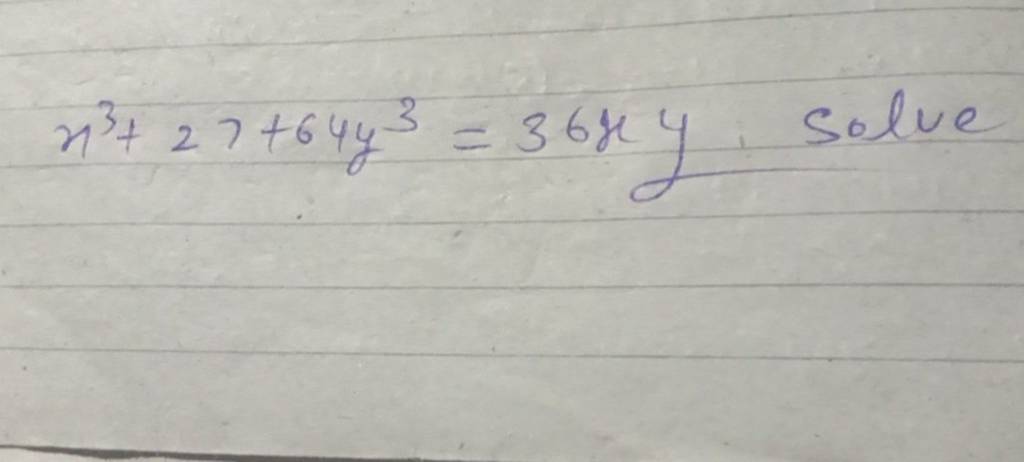 x³ + 27 + 64y³ = 36xy. Solve